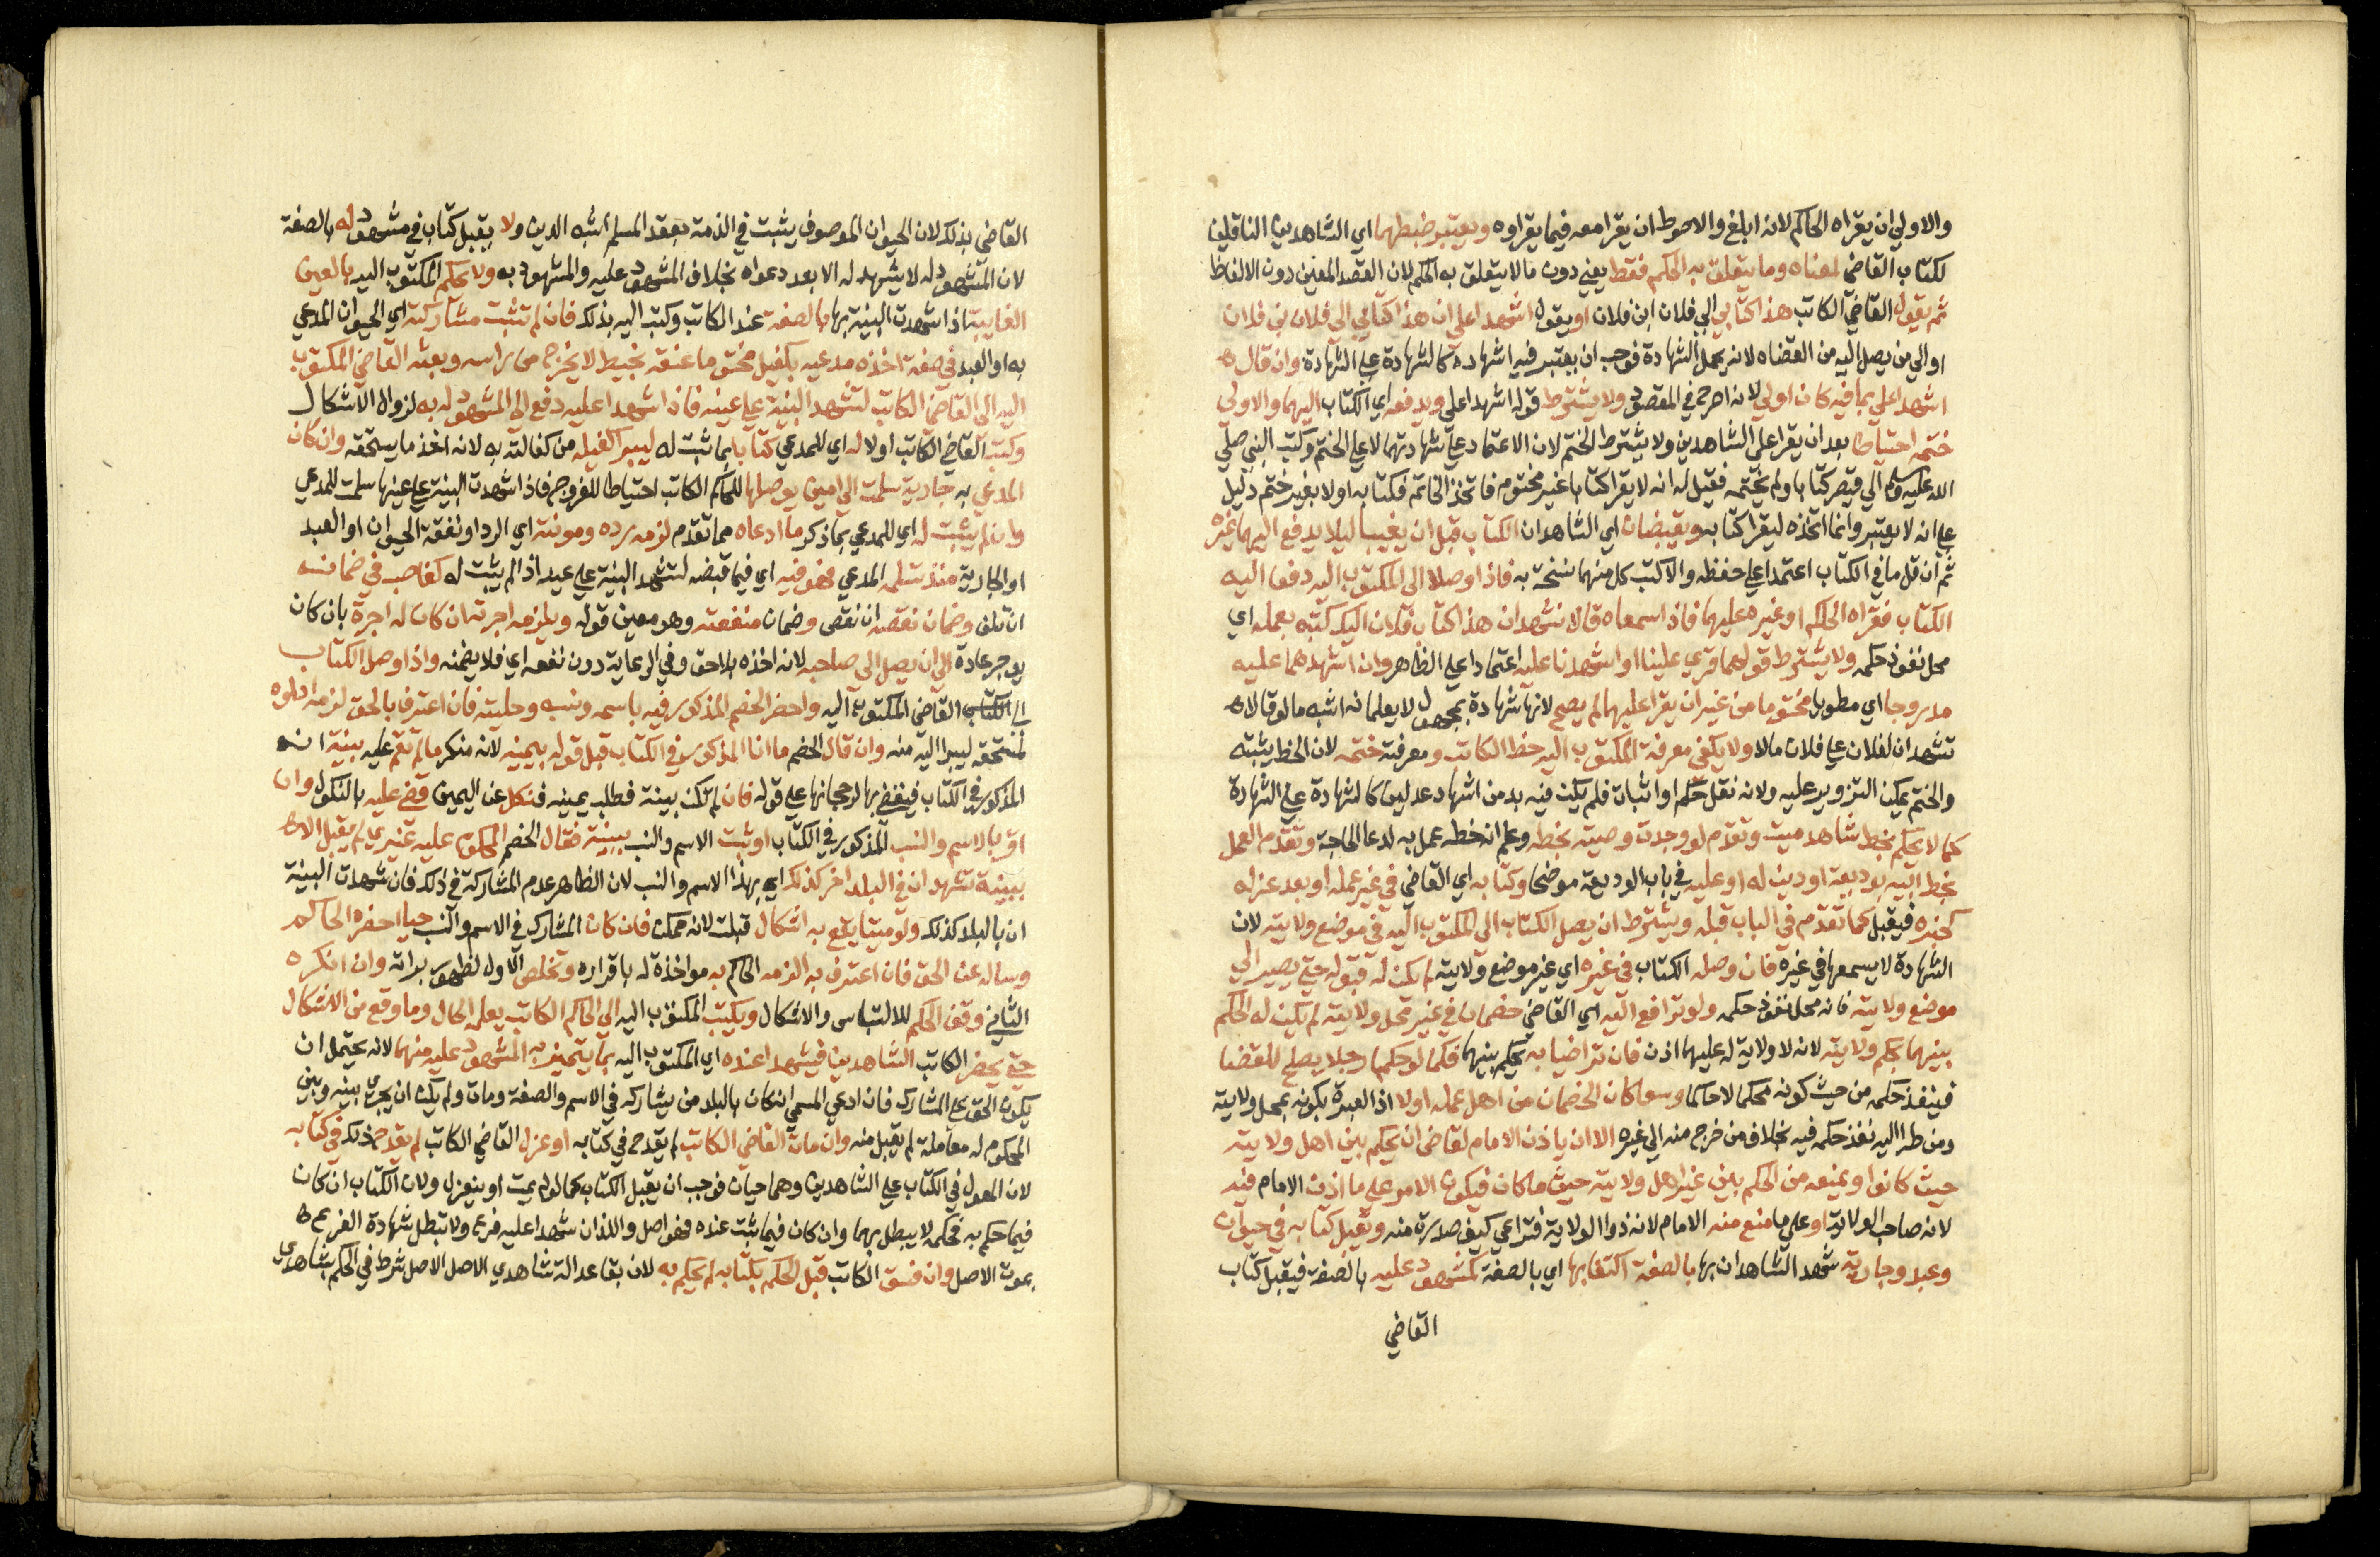 والاولي ان يقراه الحاكم لانه ابلغ والاحوط ان يقرا معه فيما يقراوه ويعتبر ضبطهما اي الشاهدين الناقلين
لكتاب القاضي لمعناه وما يتعلق به الحكم فقط يعني دون ما لا يتعلق به الحكم لان القصد المعني دون الالفاظ
ثم يقول القاضي الكاتب هذا كتابي الي فلان ابن فلان او يقول اشهدا علي ان هذا كتابي الي فلان بن فلان
او الي من يصل اليه من القضاه لانه يحمل الشهادة فوجب ان يعتبر فيه اشهاده كالشهادة علي الشهادة وان قال
اشهدا علي بما فيه كان اولي لانه اصرح في المقصود ولا يشترط قوله اشهدا علي ويدفعه اي الكتاب اليهما والاولي
ختمه احتياطا بعد ان يقرا علي الشاهدين ولا يشترط الختم لان الاعتماد علي شهادتهما لا علي الختم وكتب النبي صلي
الله عليه وسلم الي قيصر كتابا ولم يختمه فقيل له انه لا يقرا كتابا غير مختوم فاتخذ الخاتم فكتابه اولا بغير ختم دليل
علي انه لا يعتبر وانما اتخذه ليقرا كتابه ويقبضان اي الشاهدان الكتاب قبل ان يغيبا ليلا يدفع اليهما غيره
ثم ان قل ما في الكتاب اعتمدا علي حفظه والا كتب كل منهما نسخة به فاذا وصلا الي المكتوب اليه دفعا اليه
الكتاب فقراه الحاكم او غيره عليهما فاذا سمعاه قالا نشهد ان هذا كتاب فلان اليك كتبه بعمله اي
محل نفوذ حكمه ولا يشترط قولهما قري علينا او اشهدنا عليه اعتمادا علي الظاهر وان اشهدهما عليه
مدروجا اي مطويا مختوما من غير ان يقرا عليهما لم يصح لانها شهادة بمجهول لا يعلمانه اشبه ما لو قالا
تشهد ان لفلان علي فلان مالا ولا يكفي معرفة المكتوب اليه خط الكاتب ومعرفة ختمه لان الخط يشبه
والختم يمكن التزوير عليه ولانه نقل حكم او اثبات فلم يكن فيه بد من اشهاد عدلين كالشهادة علي الشهادة
كما لا يحكم بخط شاهد ميت وتقدم لو وجدت وصيته بخطه وعلم انه خطه عمل به لدعا الحاجة وتقدم العمل
بخط ابيه بوديعة او دين له او عليه في باب الوديعة موضحا وكتابه اي القاضي في غير عمله او بعد عزله
كخبره فيقبل كما تقدم في الباب قبله ويشترط ان يصل الكتاب الي المكتوب اليه في موضع ولايته لان
الشهادة لا يسمعها في غيره فان وصله الكتاب في غيره اي غير موضع ولايته لم يكن له قبوله حتي يصير الي
موضع ولايته فانه محل نفوذ حكمه ولو ترافع اليه اي القاضي خصمان في غير محل ولايته لم يكن له الحكم
بينهما بحكم ولايته لانه لا ولاية له عليهما اذن فان تراضيا به يحكم بينهما فكما لو حكما رجلا يصلح للقضا
فينفذ حكمه من حيث كونه محكما لا حاكما وسوا كان الخصمان من اهل عمله اولا اذ العبرة بكونه بمحل ولايته
ومن طرا اليه نفذ حكمه فيه بخلاف من خرج منه الي غيره الا ان ياذن الامام لقاض ان يحكم بين اهل ولايته
حيث كانوا ويمنعه من الحكم بين غير اهل ولايته حيث ما كان فيكون الامر علي ما اذن الامام فيه
لانه صاحب الولاية او علي ما منع منه الامام لانه ذو الولاية فتراعي كيف صدرت منه ويقبل كتابه في حيوان
وعبد وجارية شهد الشاهدان بها بالصفة اكتفا بها اي بالصفة كمشهود عليه بالصفة فيقبل كتاب
القاضي
القاضي بذلك لان الحيوان الموصوف يثبت في الذمة بعقد السلم اشبه الدين ولا يقبل كتاب في مشهود له بالصفة
لان المشهود له لا يشهد له الا بعد دعواه بخلاف المشهود عليه والمشهود به ولا يحكم المكتوب اليه بالعين
الغايبة اذا شهدت البينة بها بالصفة عند الكاتب وكتب اليه بذلك فان لم تثبت مشاركة اي الحيوان المدعي
به او العبد في صفته اخذه مدعيه بكفيل مختوما عنقه بخيط لا يخرج من راسه وبعثه القاضي المكتوب
اليه الي القاضي الكاتب لتشهد البينة علي عينه فاذا شهدا عليه دفع الي المشهود له به لزوال الاشكال
وكتب القاضي الكاتب اولا له اي للمدعي كتابا بما ثبت له ليبرا كفيله من كفالته به لانه اخذ ما يستحقه وان كان
المدعي به جارية سلمت الي امين يوصلها للحاكم الكاتب احتياطا للفروج فاذا شهدت البينة علي عينها سلمت للمدعي
وان لم يثبت له اي للمدعي بما ذكر ما ادعاه مما تقدم لزمه رده ومونته اي الرد او نفقة الحيوان او العبد
او الجارية منذ تسلمه المدعي فهو فيه اي فيما قبضه لتشهد البينة علي عينه اذا لم يثبت له كغاصب في ضمانه
ان تلف وضمان نقصه ان نقص وضمان منفعته وهو معين قوله ويلزمه اجرته ان كان له اجرة بان كان
يوجر عادة الي ان يصل الي صاحبه لانه اخذه بلا حق وفي الرعاية دون نفعه اي فلا يضمنه واذا وصل الكتاب
الي القاضي المكتوب اليه واحضر الخصم المذكور فيه باسمه ونسبه وحليته فان اعترف بالحق لزمه اداوه
لمستحقه ليبرا اليه منه وان قال الخصم ما انا المذكور في الكتاب قبل قوله بيمينه لانه منكر ما لم تقم عليه بينة انه
المذكور في الكتاب فيقضي بها لرجحانها علي قوله فان لم تكن بينة فطلب يمينه فنكل عن اليمين قضي عليه بالنكول وان
اقر بالاسم والنسب المذكور في الكتاب او ثبت الاسم والنسب ببينة فقال الخصم المحكوم عليه غيري لم يقبل الا
ببينة تشهد ان في البلد اخر كذلك اي بهذا الاسم والنسب لان الظاهر عدم المشاركة في ذلك فان شهدت البينة
ان بالبلد كذلك ولو ميتا يقع به اشكال قبلت لانه ممكن فان كان المشارك في الاسم والنسب حيا احضره الحاكم
وساله عن الحق فان اعترف به الزمه الحاكم به مواخذة له باقراره وتخلص الاول لظهور براته وان انكره
الثاني وقف الحكم للالتباس والاشكال ويكتب المكتوب اليه الي الحاكم الكاتب يعلمه الحال وما وقع من الاشكال
حتي يحضر الكاتب الشاهدين فيشهدا عنده اي المكتوب اليه بما يتميز به المشهود عليه منهما لانه يحتمل ان
يكون الحق علي المشارك فان ادعي المسمي انه كان بالبلد من يشاركه في الاسم والصفة ومات ولم يكن ان يجري بينه وبين
المحكوم له معاملة لم يقبل منه وان مات القاضي الكاتب لم يقدح في كتابه او عزل القاضي الكاتب لم يقدح ذلك في كتابه
لان المعول في الكتاب علي الشاهدين وهما حيان فوجب ان يقبل الكتاب كما لو لم يمت او ينعزل ولان الكتاب ان كان
فيما حكم به فحكمه لا يبطل بهما وان كان فيما ثبت عنده فهو اصل واللذان شهدا عليه فرع ولا تبطل شهادة الفرع
بموت الاصل وان فسق الكاتب قبل الحكم بكتابه لم يحكم به لان بقا عدالة شاهدي الاصل شرط في الحكم بشاهدي